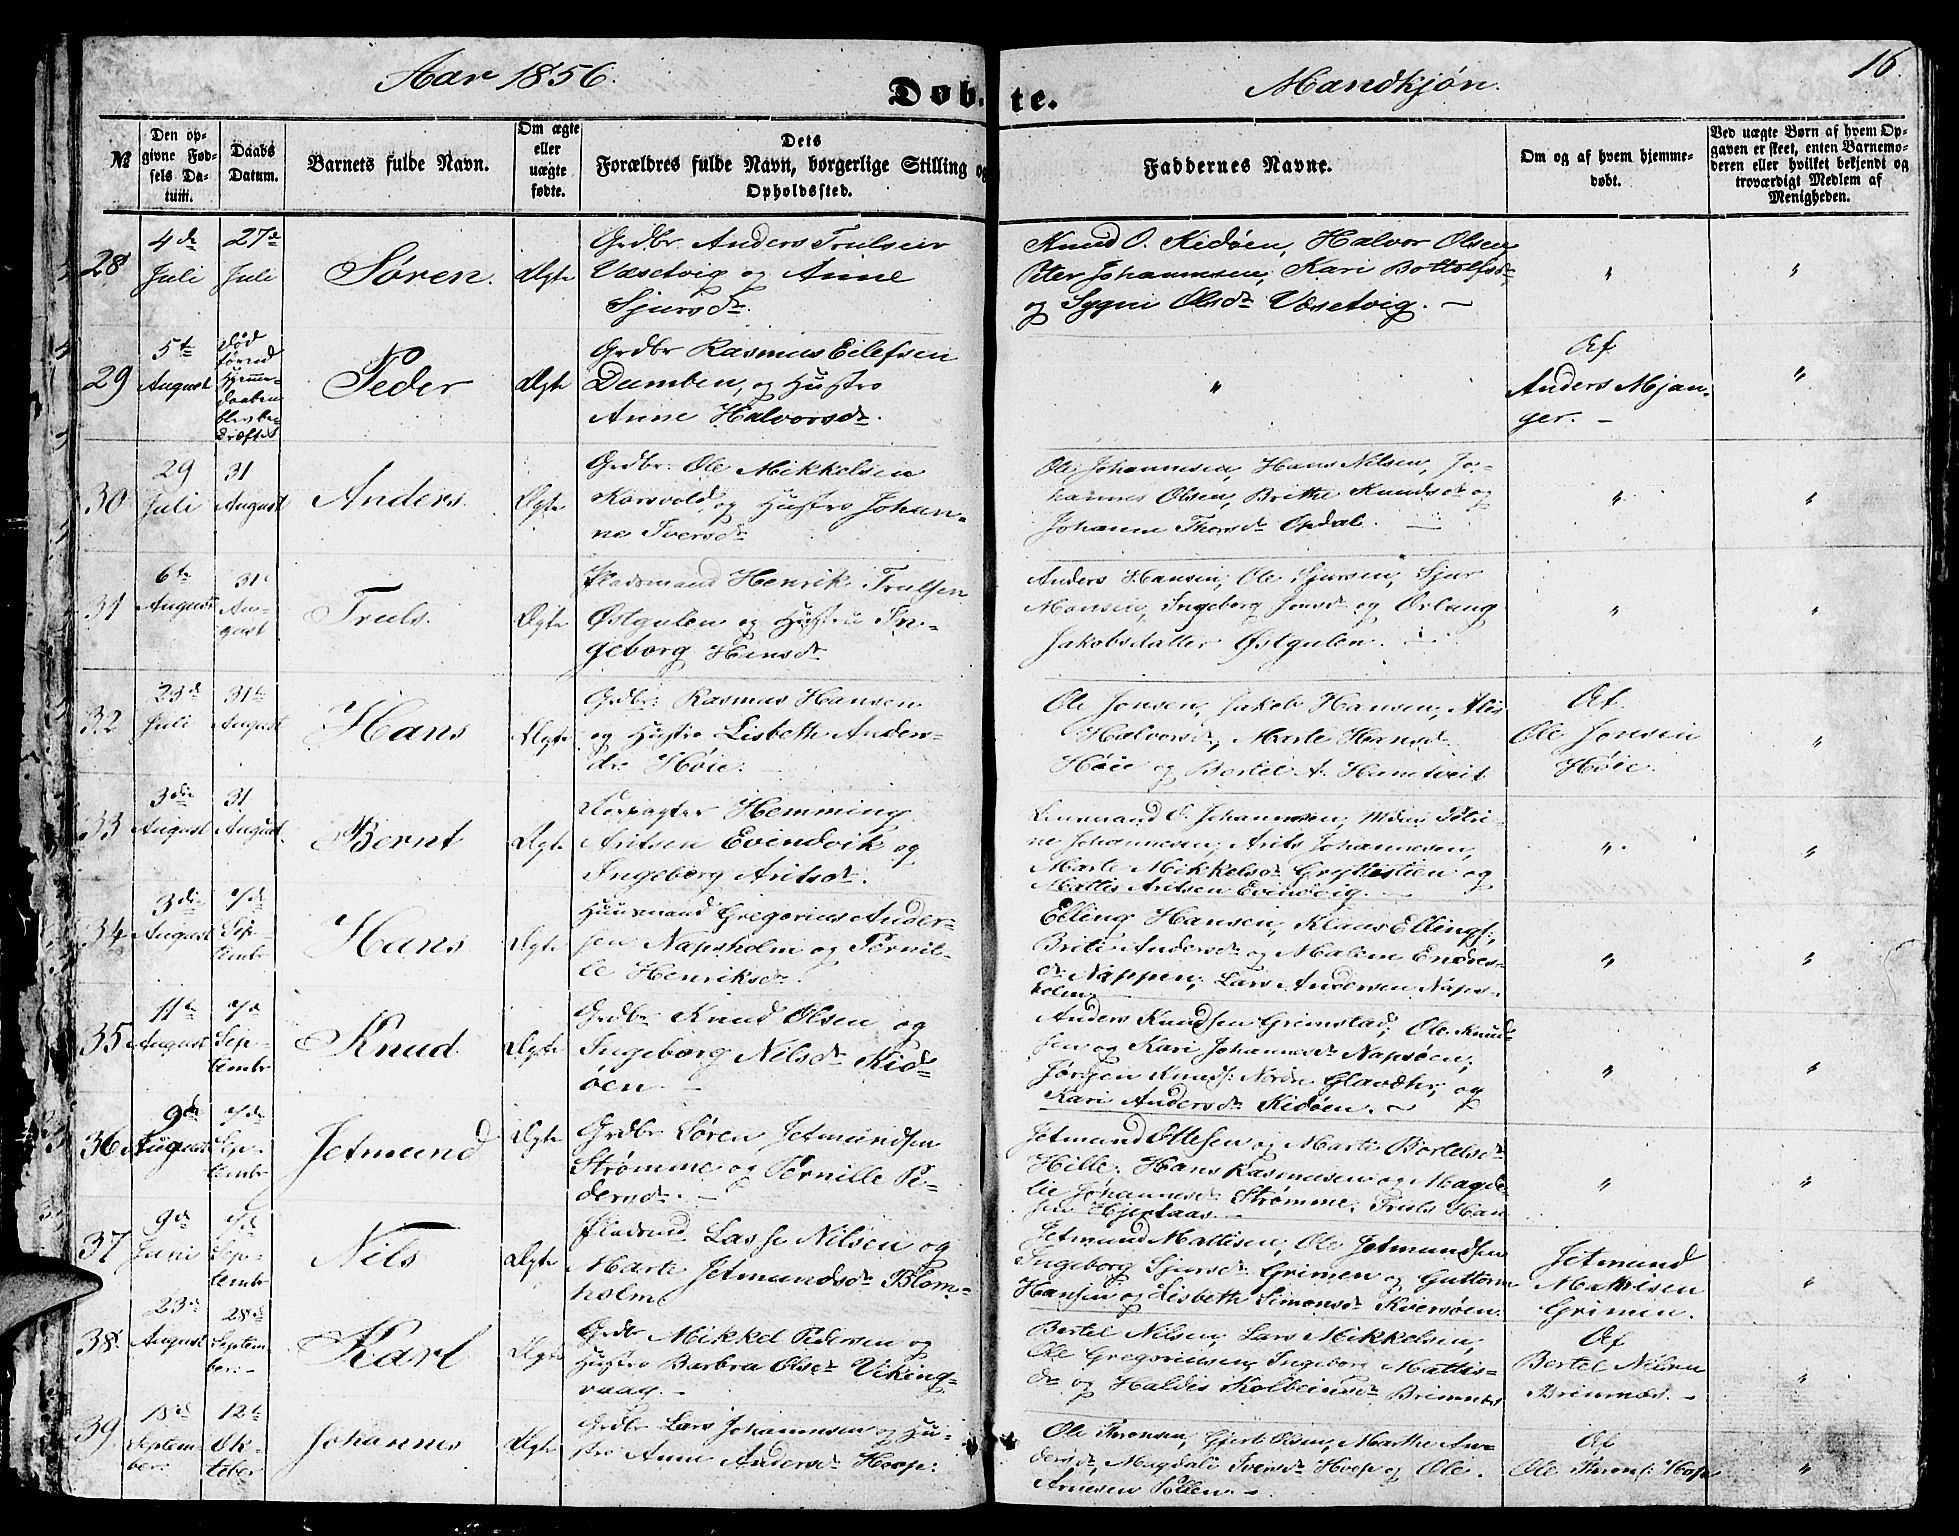 Aar 1856.
Døbte.
Mandkjøn.
16.
№
Den opgivne Fødsels Datum.
Daabs Datum.
Barnets fulde Navn.
Om ægte eller uægte fødte.
Dets Forældres fulde Navn, borgerlige Stilling og Opholdssted.
Faddernes Navne.
Om og af hvem hjemmedøbt.
Ved uægte Børn af hvem Opgaven er skeet, enten Barnemoderen eller hvilket bekjendt og troværdigt Medlem af Menigheden.
28
4de Juli
27de Juli
Søren.
Ægte
Grdbr. Anders Trulsen
Væsetvig og Anne
Sjursdr.
Knud O. Kidøen, Halvor Olsen,
Peter Johannesen, Kari Bottolfsdr,
og Sygni Olsdr Væsetvig. —
"
"
29
5te August
Død førend Hjemmedaaben blev bekræftet
Peder
Ægte
Grdbr Rasmus Eilefsen
Dumben, og Hustro
Anne Halvorsdr.
"
Af
Anders Mjan-
ger. —
"
30
29 Juli
31 August
Anders.
Ægte
Grdbr: Ole Mikkelsen
Korsvold, og Hustro Johan-
ne Iversdr
Ole Johannesen, Hans Nilsen, Jo-
hannes Olsen, Brithe Knudsdr og
Johanne Thorsdr Opdal. —
"
"
31
6te August
31te August
Truls.
Ægte
Pladsmand Henrik Trulsen
Østgulen og Hustru In-
geborg Hansdr
Anders Hansen, Ole Sjursen, Sjur
Monsen, Ingeborg Jonsdr og
Jakobsdatter Østgulen.
"
"
32
23de Juli
31te August
Hans
Ægte
Grdbr: Rasmus Hansen
og Hustro Lisbeth Anders-
dr Høie.
Ole Jonsen, Jakob Hansen, Alis
Halvorsdr, Marte Hansdr
Høie og Bertel A. Hantveit
Af.
Ole Jonsen
Høie.
"
33
3die August
31 August
Bernt
Ægte
Forpagter Hemming
Aritsen Evindvik og
Ingeborg Aritsdr.
Lensmand O. Johannesen, Mdme Petri-
ne Johannesen, Arits Johannesen,
Marte Mikkelsdr Gryttestien og
Mattis Aritsen Evindvig. —
"
"
34
3die August
7de September
Hans
Ægte
Huusmand Gregorius Ander-
sen Napsholm og Pernil-
le Henriksdr.
Elling Hansen, Klaus Ellings:,
Brite Andersdr og Malene Endres-
dr Nappen, Lars Andersen Naps-
holm.
"
"
35
11te August
7de September
Knud
Ægte
Grdbr Knud Olsen og
Ingeborg Nilsdr Kid-
øen. —
Anders Knudsen Grimstad, Ole Knud-
sen og Kari Johannesdr Napsøen,
Jørgen Knuds: Nordre Glavdter, og
Kari Andersdr Kidøen. —
"
"
36
9de August
7de September
Jetmund
Ægte
Grdbr Søren Jetmundsen
Strømme og Pernille Pe-
dersdr. —
Jetmund Ottesen og Marte Bertelsdr
Hille. Hans Rasmusen og Magde-
lie Johannesdr Strømme, Truls Han
sen Hjertaas. —
"
"
37
9de Juni
7de September
Nils
Ægte
Pladsmd. Lasse Nilsen og
Marte Jetmundsdr Blom-
holm
Jetmund Mattisen, Ole Jetmundsen
Ingeborg Sjursdr Grimen og Guttorm
Hansen og Lisbeth Simonsdr Kversøen.
Jetmund
Mathisen
Grimen.
"
38.
23de August
28de September:
Karl
Ægte
Grdbr Mikkel Pedersen og
Hustro Barbra Olsdr Viking-
vaag. —
Bertel Nilsen, Lars Mikkelsen,
Ole Gregoriusen, Ingeborg Mattis-
dr og Haldis Kolbeinsdr Brimnæs
Af
Bertel Nilsen
Brimnæs. —
"
39
18de September:
12te Oktober
Johannes
Ægte
Grdbr Lars Johannesen og Hu-
stro Anne Andersdr Hoop:
Ole Thronsen, Gjert Olsen, Marthe An-
dersdr, Magdali Iversdr Hoop og Ole.
Arnesen Sollen. —
Af
Ole Throns: Hop
"